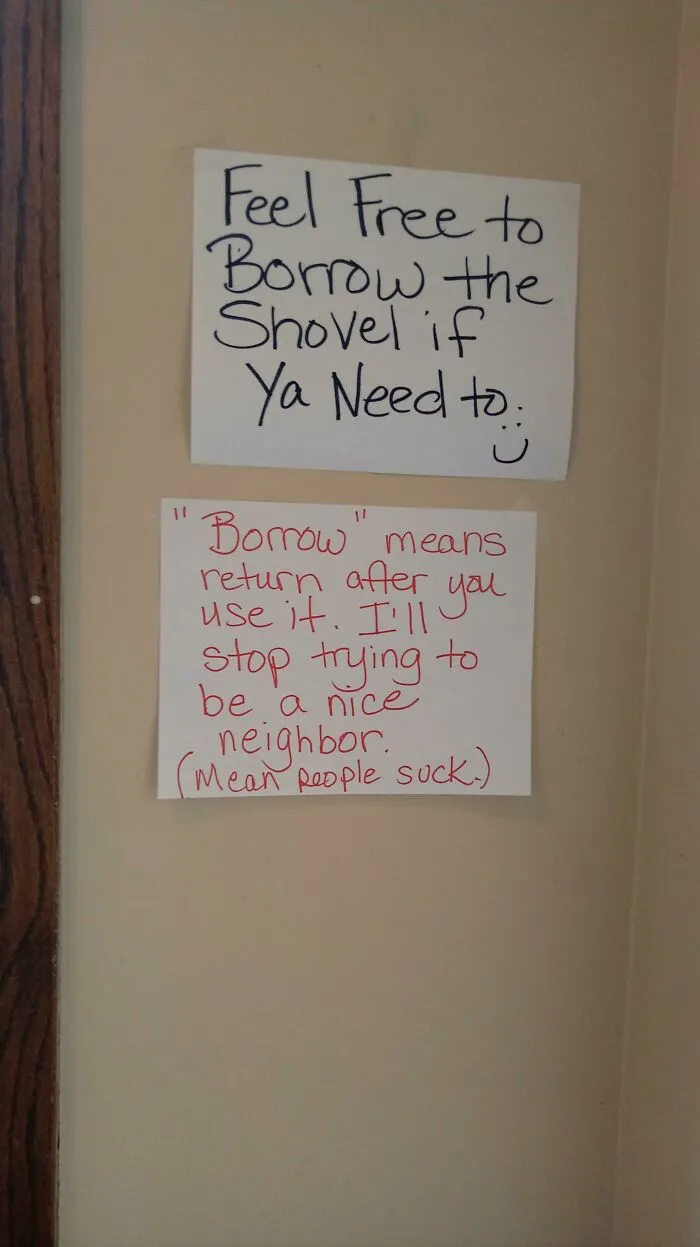 Feel Free to
Borrow the
Shovel if
Ya Need to. :)
"Borrow" means
return after you
use it. I'll
stop trying to
be a nice
neighbor.
(Mean people suck.)